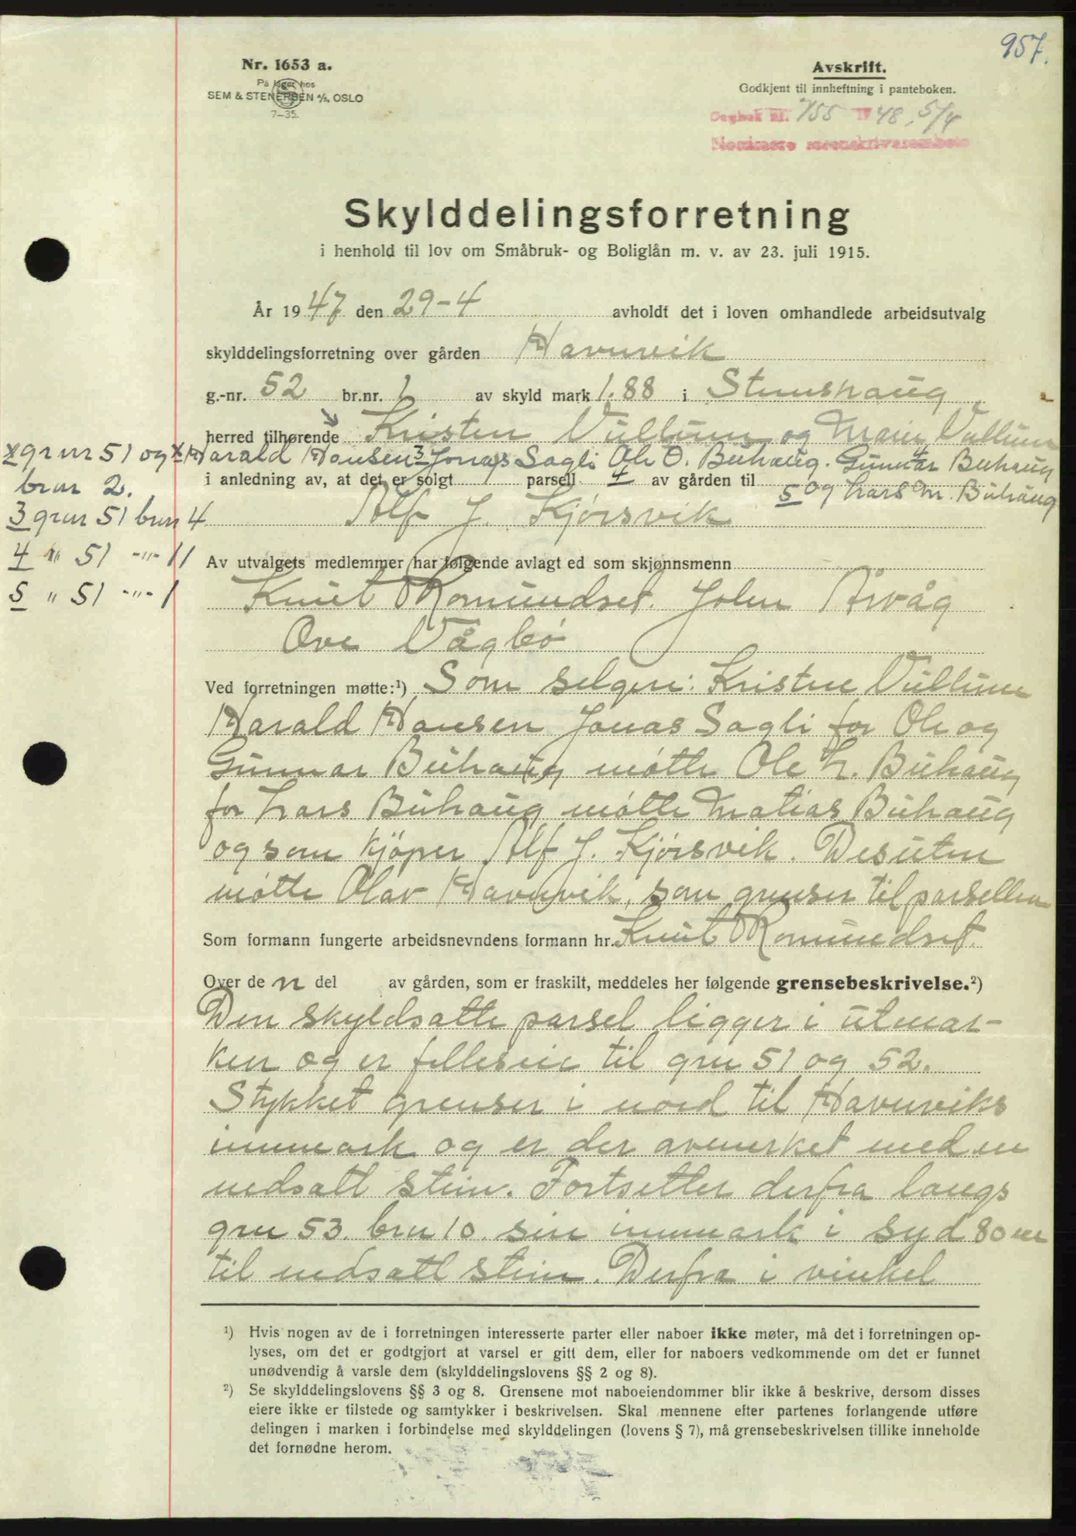 957.
Nr. 1653 a.
På lager hos
SEM & STENERSEN A/S, OSLO
7-35.
Avskrift.
Godkjent til innheftning i panteboken.
Dagbok nr. 755 19 48, 5/4
Nordmøre sorenskriverembete
Skylddelingsforretning
i henhold til lov om Småbruk- og Boliglån m. v. av 23. juli 1915.
År 1947 den 29-4 avholdt det i loven omhandlede arbeidsutvalg
skylddelingsforretning over gården Havnvik
g.-nr. 52 br.nr. 1 av skyld mark 1.88 i Stemshaug
herred tilhørende Kristen Vullum og Marie Vullum
x Harald Hansen 3 Jonas Sagli Ole O. Buhaug. Gunnar Buhaug
i anledning av, at det er solgt 1 parsell 4 av gården til 5 og Lars M. Buhaug
Alf J. Kjørsvik
x grnr 51 og
brnr 2.
3 grnr 51 brnr 4
4 " 51 -"- 11
5 " 51 -"- 1
Av utvalgets medlemmer har følgende avlagt ed som skjønnsmenn
Knut Romundset. John Årvåg
Ove Vågbø
Ved forretningen møtte:¹) Som selgere: Kristen Vullum
Harald Hansen Jonas Sagli for Ole og
Gunnar Buhaug møtte Ole L. Buhaug
for Lars Buhaug møtte Matias Buhaug
og som kjøper Alf J. Kjørsvik. Desuten
møtte Olav Havnvik, som grenser til parsellen
Som formann fungerte arbeidsnevndens formann hr. Knut Romundset.
Over de n del av gården, som er fraskilt, meddeles her følgende grensebeskrivelse.²)
Den skyldsatte parsel ligger i utmar-
ken og er felleseie til gnr 51 og 52.
Stykket grenser i nord til Havnviks
innmark og er der avmerket med en
nedsatt stein. Fortsetter derfra langs
gnr 53. brn 10. sin innmark i syd 80 m
til nedsatt stein. Derfra i vinkel
¹) Hvis nogen av de i forretningen interesserte parter eller naboer ikke møter, må det i forretningen op-
lyses, om det er godtgjort at varsel er gitt dem, eller for naboers vedkommende om det er funnet
unødvendig å varsle dem (skylddelingslovens §§ 2 og 8).
²) Se skylddelingslovens §§ 3 og 8. Grensene mot naboeiendommer blir ikke å beskrive, dersom disses
eiere ikke er tilstede og samtykker i beskrivelsen. Skal mennene efter partenes forlangende utføre
delingen i marken i forbindelse med skylddelingen (lovens § 7), må grensebeskrivelsen tillike inneholde
det fornødne herom.